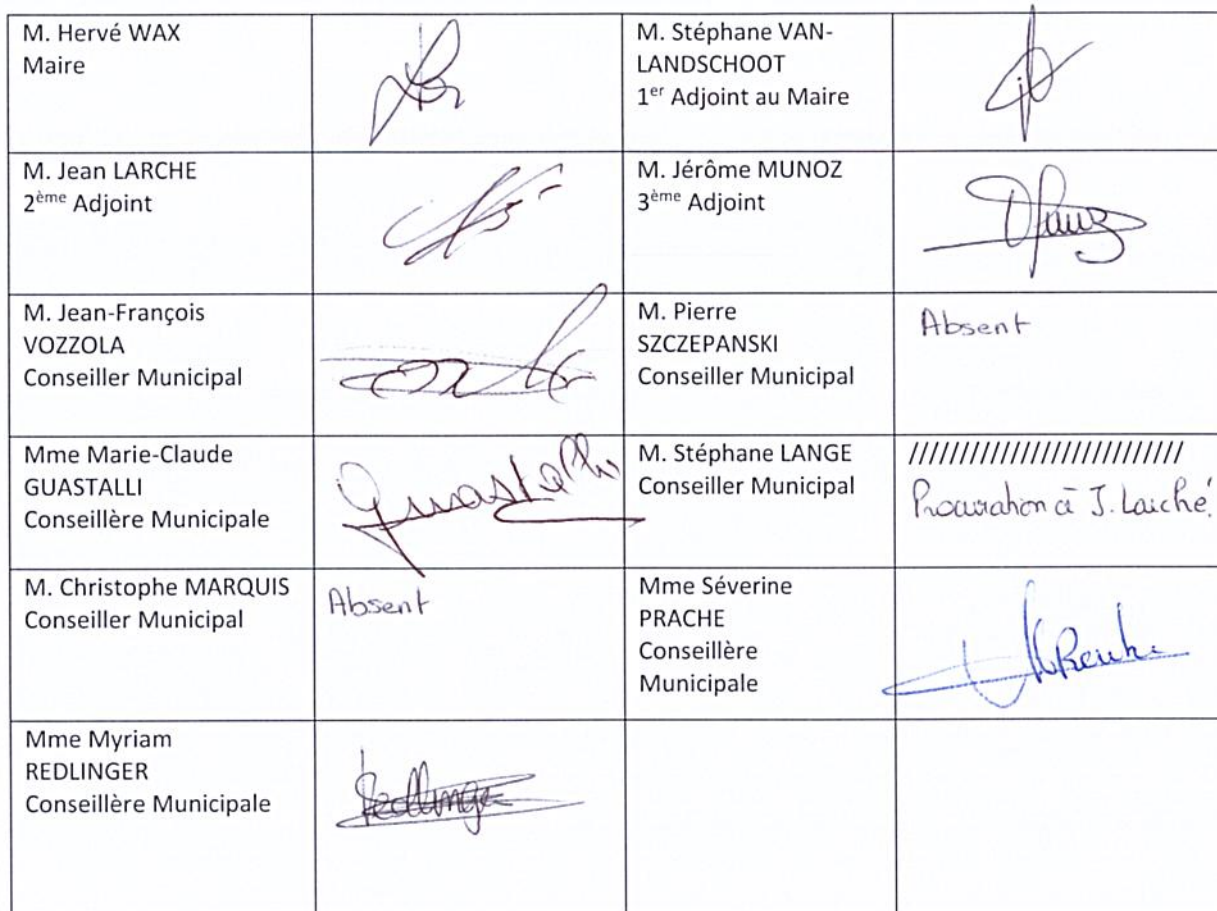 M. Hervé WAX
Maire
M. Stéphane VAN-
LANDSCHOOT
1er Adjoint au Maire
M. Jean LARCHE
2ème Adjoint
M. Jérôme MUNOZ
3ème Adjoint
M. Jean-François
VOZZOLA
Conseiller Municipal
M. Pierre
SZCZEPANSKI
Conseiller Municipal
Absent
Mme Marie-Claude
GUASTALLI
Conseillère Municipale
Guastalli
M. Stéphane LANGE
Conseiller Municipal
///////////////////////////
Procuration à J. Larché.
M. Christophe MARQUIS
Conseiller Municipal
Absent
Mme Séverine
PRACHE
Conseillère
Municipale
Mme Myriam
REDLINGER
Conseillère Municipale
Redlinger